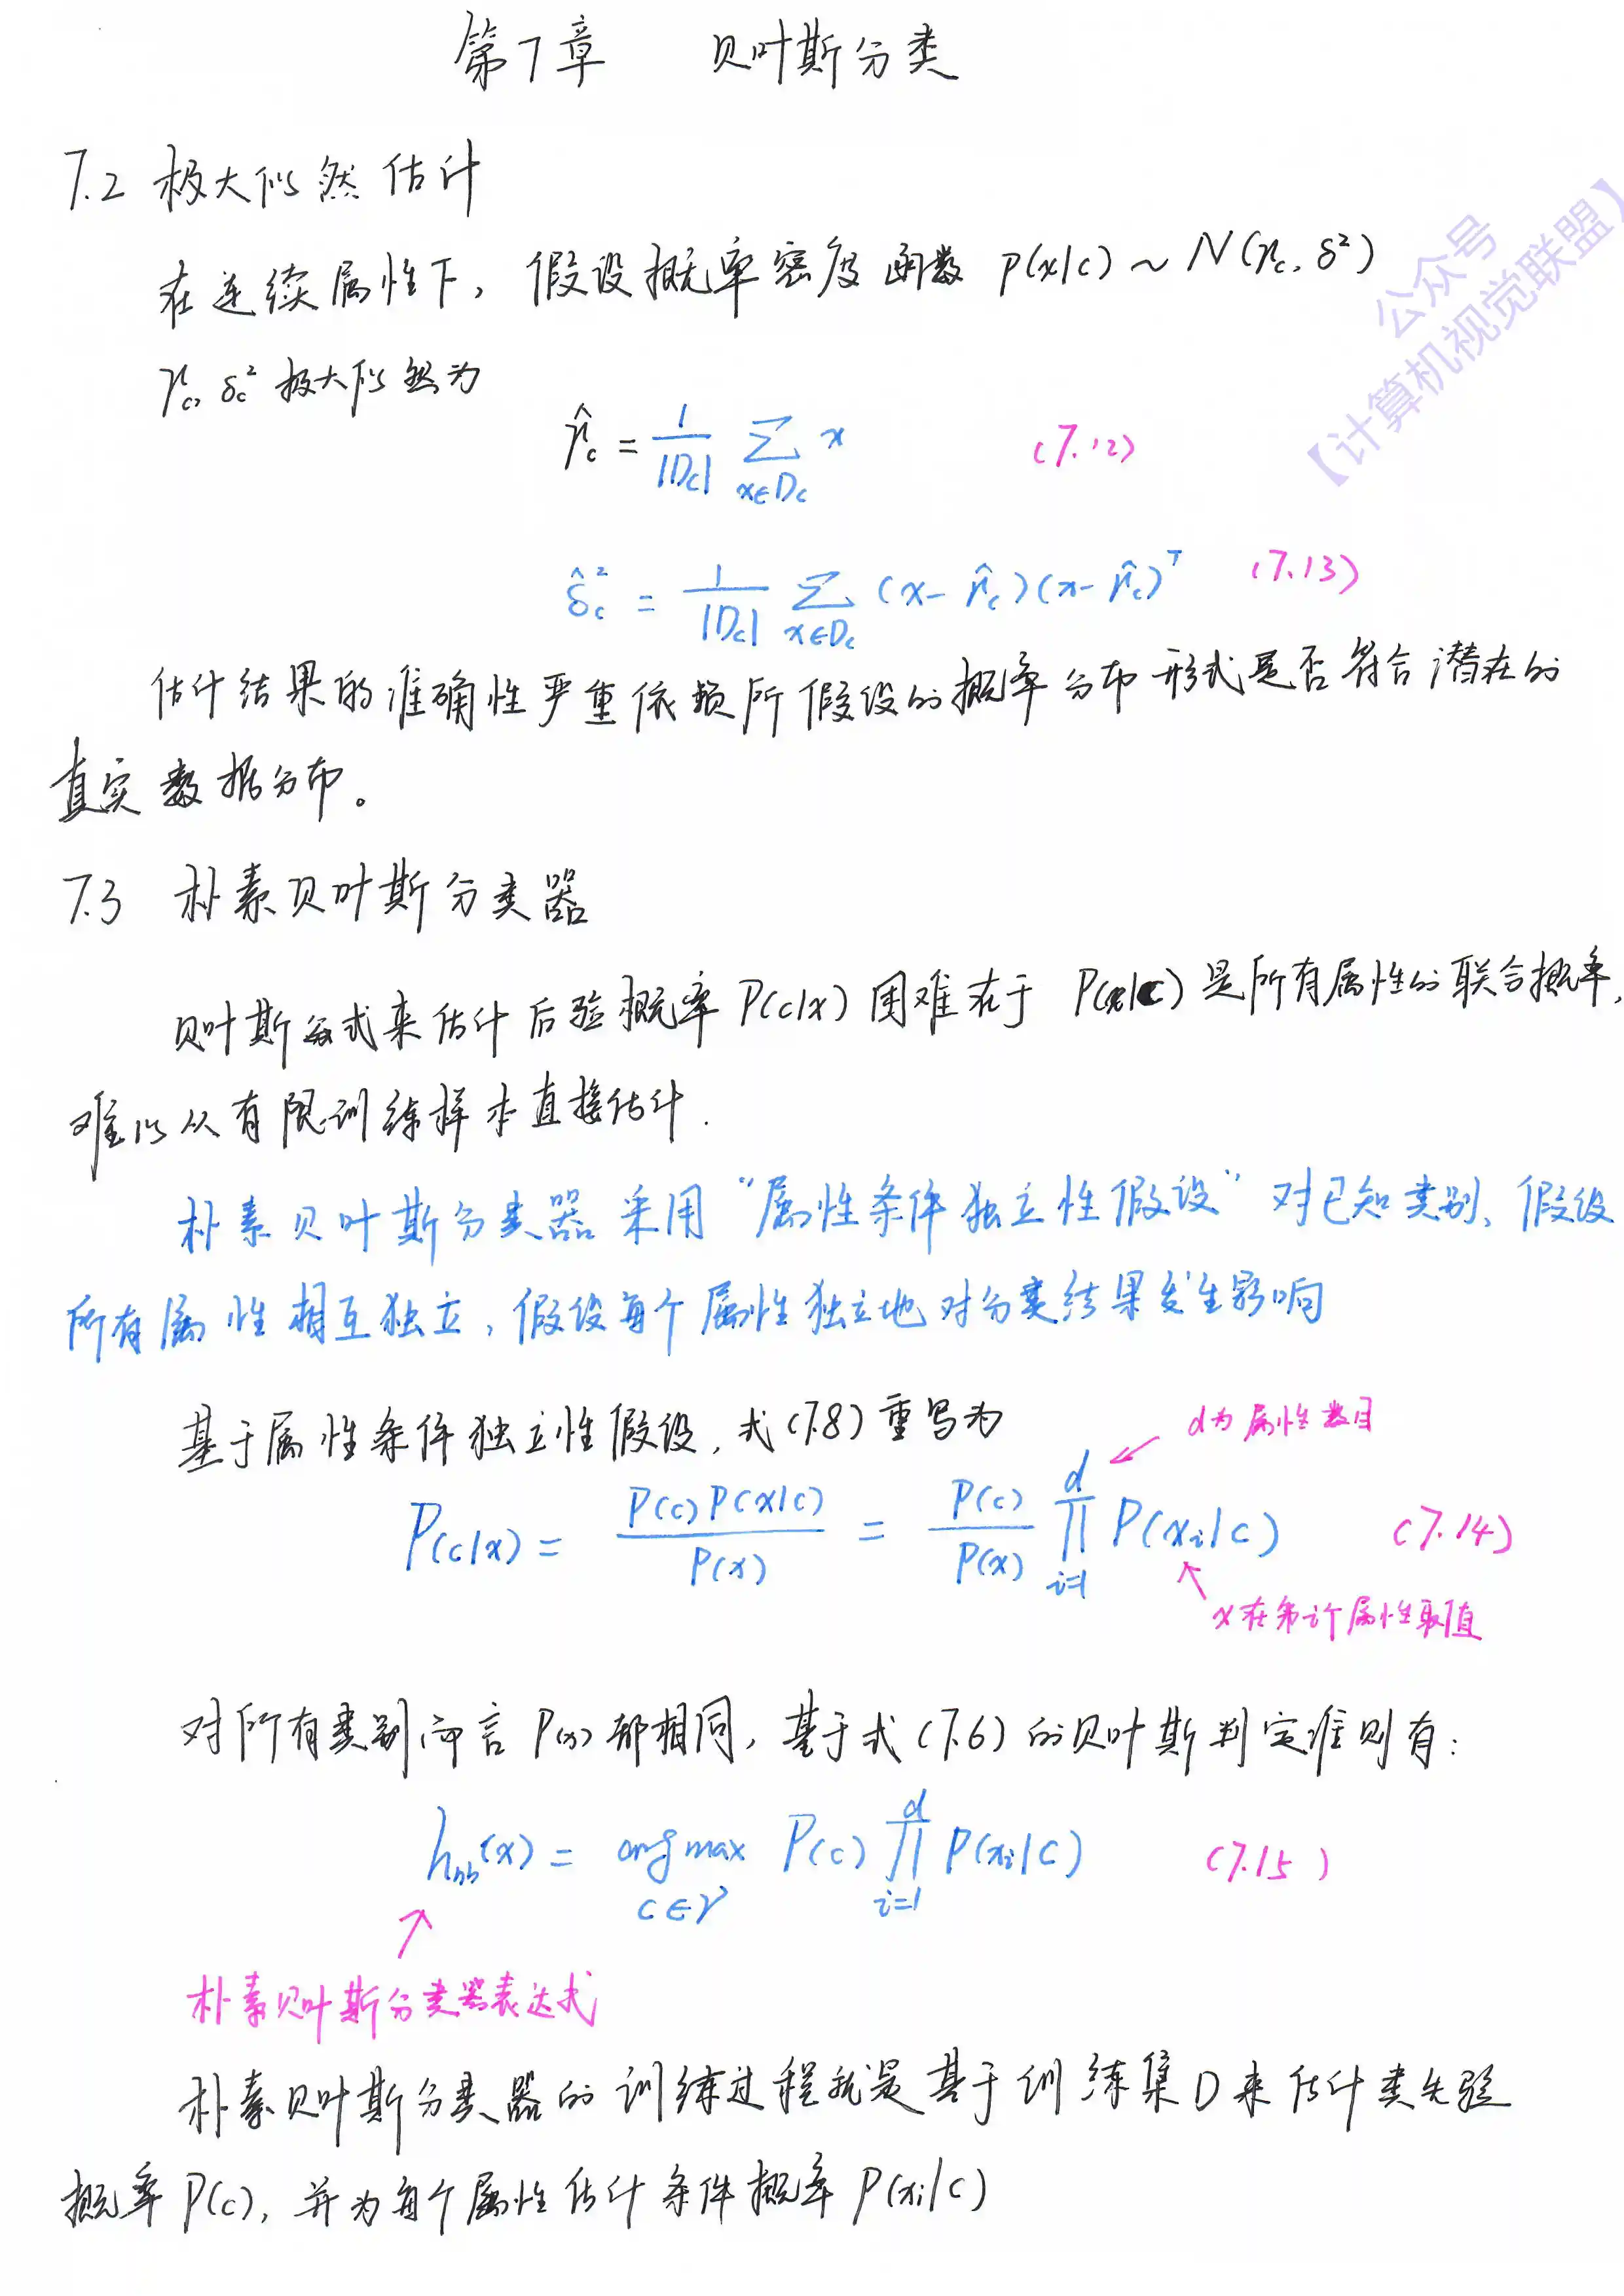 第7章 贝叶斯分类
7.2 极大似然估计
在连续属性下，假设概率密度函数 p(x|c) ~ N(μc, δ²)
μc, δc² 极大似然为
μ̂c = 1/|Dc| ∑x∈Dc x (7.12)
δ̂c² = 1/|Dc| ∑x∈Dc (x-μ̂c)(x-μ̂c)ᵀ (7.13)
估计结果的准确性严重依赖所假设的概率分布形式是否符合潜在的
真实数据分布。
7.3 朴素贝叶斯分类器
贝叶斯公式来估计后验概率 P(c|x) 困难在于 P(x|c) 是所有属性的联合概率,
难以从有限训练样本直接估计.
朴素贝叶斯分类器采用“属性条件独立性假设”对已知类别、假设
所有属性相互独立,假设每个属性独立地对分类结果发生影响
基于属性条件独立性假设,式(7.8)重写为
d为属性数目
P(c|x) = P(c)P(x|c)/P(x) = P(c)/P(x) ∏i=1d P(xi|c) (7.14)
x在第i个属性取值
对所有类别而言 P(x) 都相同,基于式(7.6)的贝叶斯判定准则有:
hnb(x) = arg max c∈Y P(c) ∏i=1d P(xi|c) (7.15)
朴素贝叶斯分类器表达式
朴素贝叶斯分类器的训练过程就是基于训练集D来估计类先验
概率 P(c), 并为每个属性估计条件概率 P(xi|c)
公众号
【计算机视觉联盟】